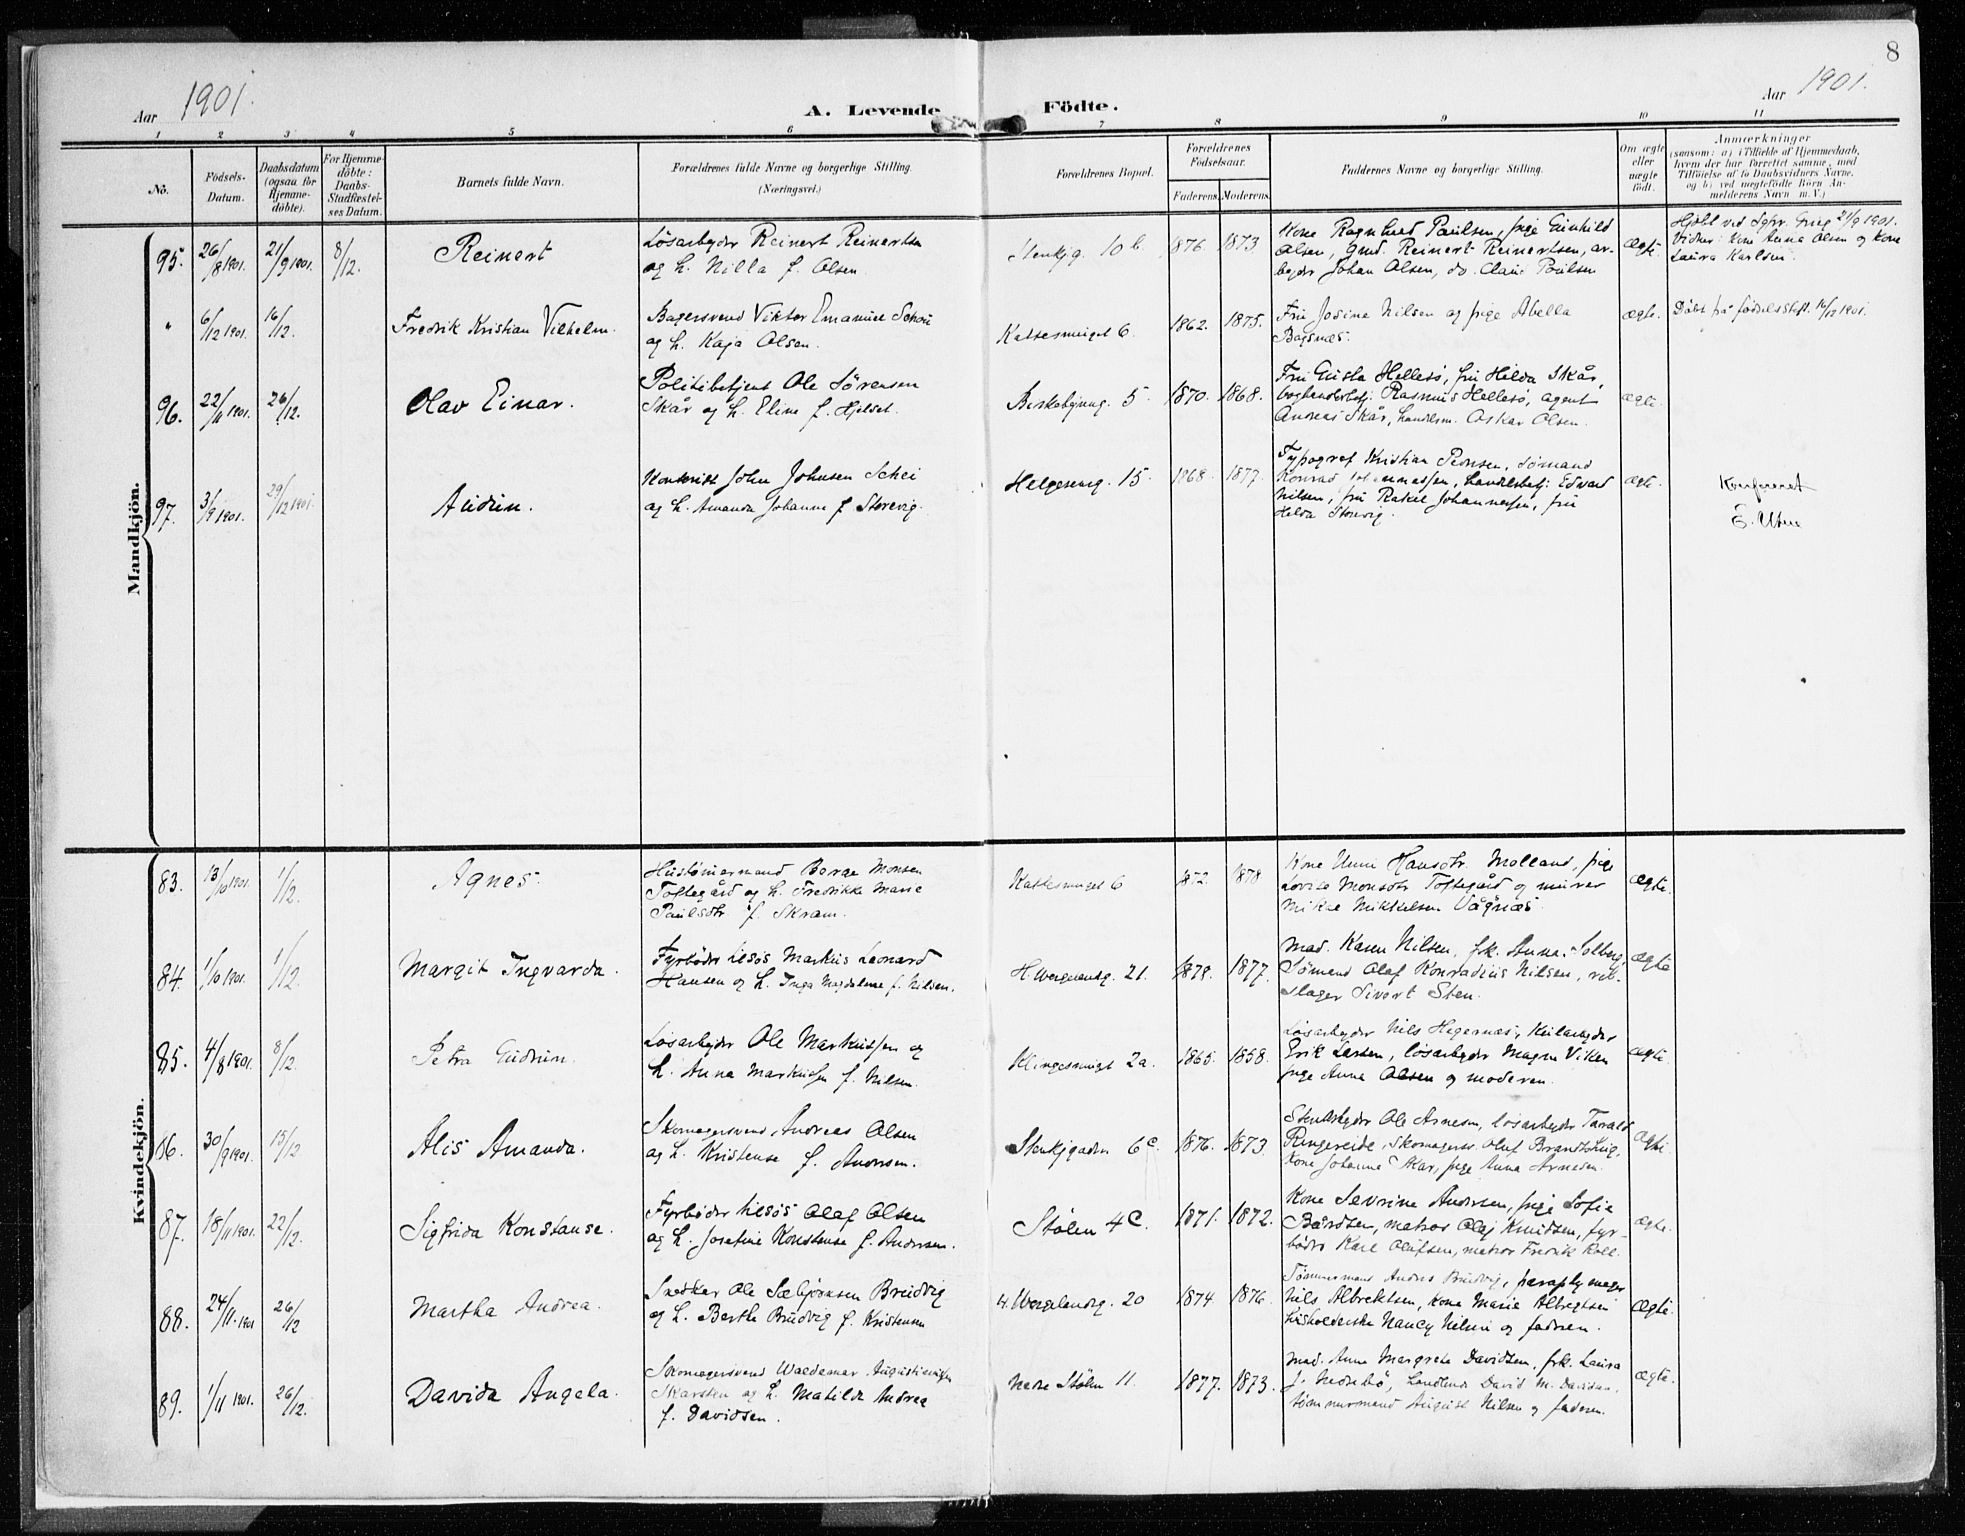 8
Aar 1901.
A. Levende Födte.
Aar 1901.
1 2 3 4 5 6 7 8 9 10 11
No.
Födsels-
Datum.
Daabsdatum
(ogsaa for
Hjemme-
döbte).
For Hjemme-
döbte:
Daabs-
Stadfæstel-
ses Datum.
Barnets fulde Navn.
Forældrenes fulde Navne og borgerlige Stilling.
(Næringsvei.)
Forældrenes Bopæl.
Forældrenes
Födselsaar.
Faderens. Moderens.
Faddernes Navne og borgerlige Stilling.
Om ægte
eller
uægte
födt.
Anmærkninger
(saasom: a) i Tilfælde af Hjemmedaab,
hvem der har forrettet samme, med
Tilföielse af to Daabsvidners Navne,
og b) ved uægtefödte Börn An-
melderens Navn m. V.)
Mandkjön.
95. 26/8 1901. 21/9 1901. 8/12.
Reinert
Løsarbeyder Reinert Reinertsen
og h. Nilla f. Olsen
Stenkjg. 10 b. 1876. 1873.
Kone Ragnhild Paulsen, pige Gunhild
Olsen, Gmd. Reinert Reinertsen, ar-
beyder Johan Olsen, do.
ægte.
Hjdbt ved Sgpr. Grieg 21/9 1901.
Vidner: Kone Anna Olsen og Kone
Laura Karlsen.
" 6/12 1901. 16/12.
Fredrik Kristian Vilhelm.
Bagersvend Viktor Emanuel
og h. Kaja Olsen.
Kattesmuget 6. 1862. 1875.
Fru Josine Nilsen og pige Abella
Bagsnæs.
ægte. Døbt på fødselsstift. 16/12 1901.
96. 22/11 1901. 26/12.
Olav Einar.
Politibetjent Ole Sørensen
Skår og h. Eline f. Hjelset.
5. 1870. 1868.
Fru Gusta Hellesø, fru Hilda Skår,
Rasmus Hellesø, agent
Andreas Skår, handlsm. Oskar Olsen.
ægte.
97. 3/9 1901. 29/12 1901.
Audun.
Kontorist John Johnsen Schei
og h. Amanda Johanne f. Storevig.
Helgesensg. 15. 1868. 1877.
Typograf Kristian Pensen, sømand
Konrad Johannessen, handelsbetj: Edvard
Nilsen, fru Rakel Johannessen, fru
Helda Storevig.
ægte.
Konfereret
E. Utne
Kvindekjön.
83. 13/10 1901. 1/12.
Agnes.
Hustømermand Berge Monsen
Toftegård og h. Fredrikke Marie
Paulsdtr. f. Skram.
Kattesmuget 6 1872. 1878
Kone Unni Hansdtr. Molland, pige
Lovise Monsdtr Toftegård og murer
Mikal Mikkelsen Vågnæs.
ægte.
84. 1/10 1901. 1/12.
Margit Ingvarda.
Fyrbøder tilsøs Markus Leonard
Hansen og h. Inga Magdalene f. Nilsen.
H. Wergelandsg. 21. 1878. 1877.
Mad. Karen Nilsen, frk. Anna Solberg,
Sømand Olaf Konradius Nilsen, reb-
slager Sivert Sten.
ægte
85. 4/8 1901. 8/12.
Petra Gudrun.
Løsarbeyder Ole Markussen og
h. Anna Markussen f. Nilsen.
Klingesmuget 2a. 1865. 1858.
Løsarbeyder Nils Hegernæs,
Erik Larsen, løsarbeyder Magne Viken
pige Anna Olsen og moderen.
ægte.
86. 30/9 1901. 15/12
Alis Amanda.
Skomagersvend Andreas Olsen
og h. Kristense f. Andersen.
Stenkjgaden 6c. 1876. 1873.
Ole Arnesen, løsarbeyder Tarald
Ringereide, Skomagersv Oluf
Kone Johanne Skar, pige Anna Arnesen.
ægte.
87. 18/11 1901. 22/12.
Sigfrida Konstanse.
Fyrbøder tilsøs Olaf Olsen
og h. Josefine Konstanse f. Andersen.
Stølen 4c. 1871. 1872.
Kone Severine Andersen, pige Sofie
Bårdsen, matros Olaj Knudsen, fyr-
bøder Karl Olufsen, matros Fredrik Roll.
ægte.
88. 24/11 1901 26/12
Martha Andrea.
Snedker Ole Sæbjørnsen Brudvig
og h. Berthe Brudvig f. Kristensen
H. Wergelandsg. 20 1874. 1876.
Tømmermand Anders Brudvig, paraplymager
Nils Albrektsen, Kone Marie Albregtsen
Nancy Nilsen og faderen.
ægte.
89. 1/11 1901. 26/12.
Davida Angela.
Skomagersvend Waldemar
Skarsten og h. Matilde Andrea
f. Davidsen.
Nedre Stølen 11. 1877. 1873.
Mad. Anne Margrete Davidsen, frk. Laura
J. Nedrebø, David M. Davidsen
tømmermand August Nilsen og faderen.
ægte.